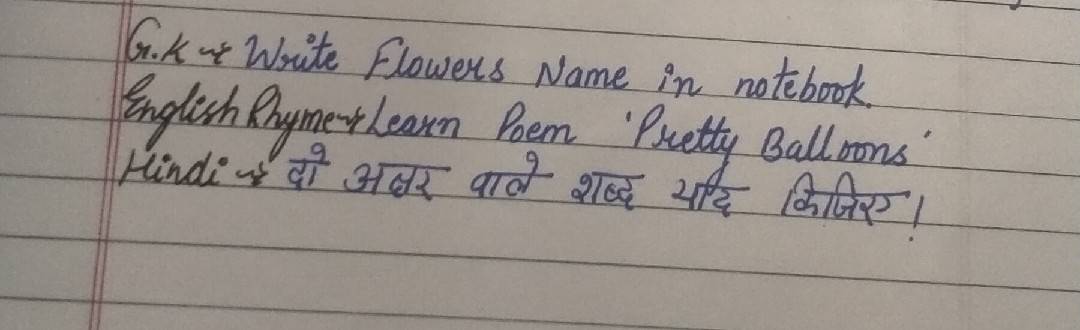 G.K → Write Flowers Name in notebook.
English Rhyme → Learn Poem 'Pretty Balloons'
Hindi → दो अक्षर वाले शब्द याद किजिए!